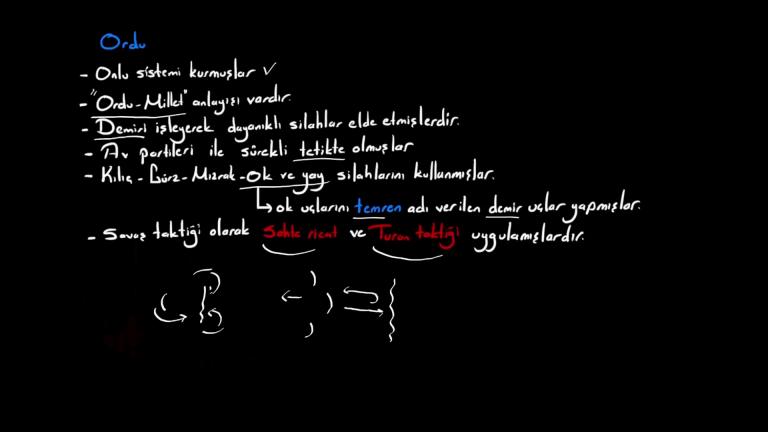 Ordu
- Onlu sistemi kurmuşlar ✓
- "Ordu-Millet" anlayışı vardır.
- Demiri işleyerek dayanıklı silahlar elde etmişlerdir.
- Av partileri ile sürekli tetikte olmuşlar
- Kılıç-Gürz-Mızrak-Ok ve yay silahlarını kullanmışlar.
↳ ok uçlarını temren adı verilen demir uçlar yapmışlar.
- Savaş taktiği olarak Sahte ricat ve Turan taktiği uygulamışlardır.